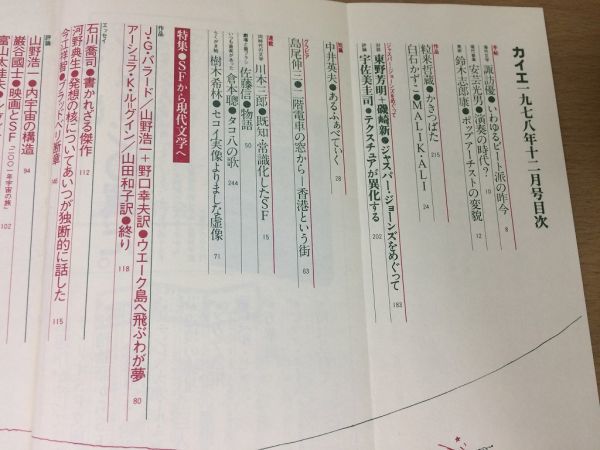 カイエ一九七八年十二月号目次
諏訪優●いわゆるビート派の昨今 8
安宗光男●演奏の時代? 10
鈴木志郎康●ポップアーチストの変貌 12
作品
粒来哲蔵●かきつばた 215
白石かずこ●MALIK・ALI 24
ジャスパー・ジョーンズをめぐって
東野芳明＋磯崎新●ジャスパー・ジョーンズをめぐって 183
宇佐美圭司●テクスチュアが異化する 202
中井英夫●あるふぁべてぃく 28
グラビア
島尾伸三●二階電車の窓から―香港という街 63
連載
同時代の文学
川本三郎●既知・常識化したSF 15
佐藤信●物語 50
倉本聰●タコ八の歌 244
樹木希林●セコイ実像よりましな虚像 71
特集●SFから現代文学へ
作品
J・G・バラード/山野浩一＋野口幸夫訳●ウエーク島へ飛ぶわが夢 80
アーシュラ・K・ルグイン/山田和子訳●終り 118
エッセイ
石川喬司●書かれざる傑作 112
河野典生●発想の核についてあいつが独断的に話した 115
今江祥智●ブラッドベリ断章
評論
山野浩一●内宇宙の構造 94
巖谷國士●映画とSF『2001年宇宙の旅』 102
富山太佳夫